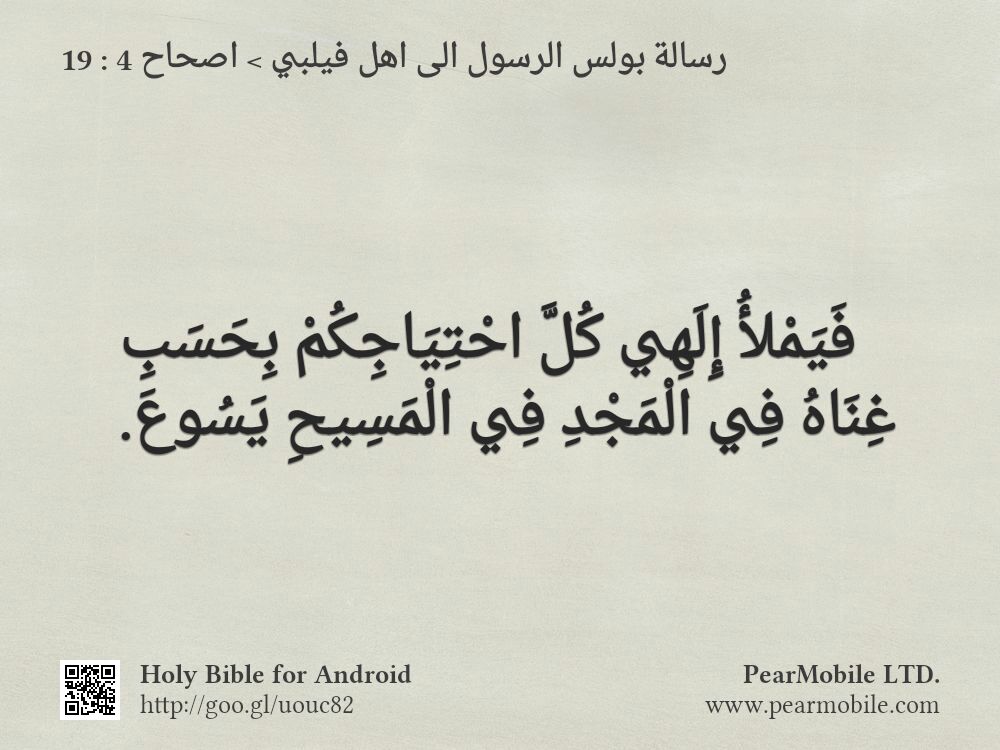 رسالة بولس الرسول الى اهل فيلبي > اصحاح 4 : 19
فَيَمْلأُ إِلَهِي كُلَّ احْتِيَاجِكُمْ بِحَسَبِ
غِنَاهُ فِي الْمَجْدِ فِي الْمَسِيحِ يَسُوعَ.
Holy Bible for Android
http://goo.gl/uouc82
PearMobile LTD.
www.pearmobile.com